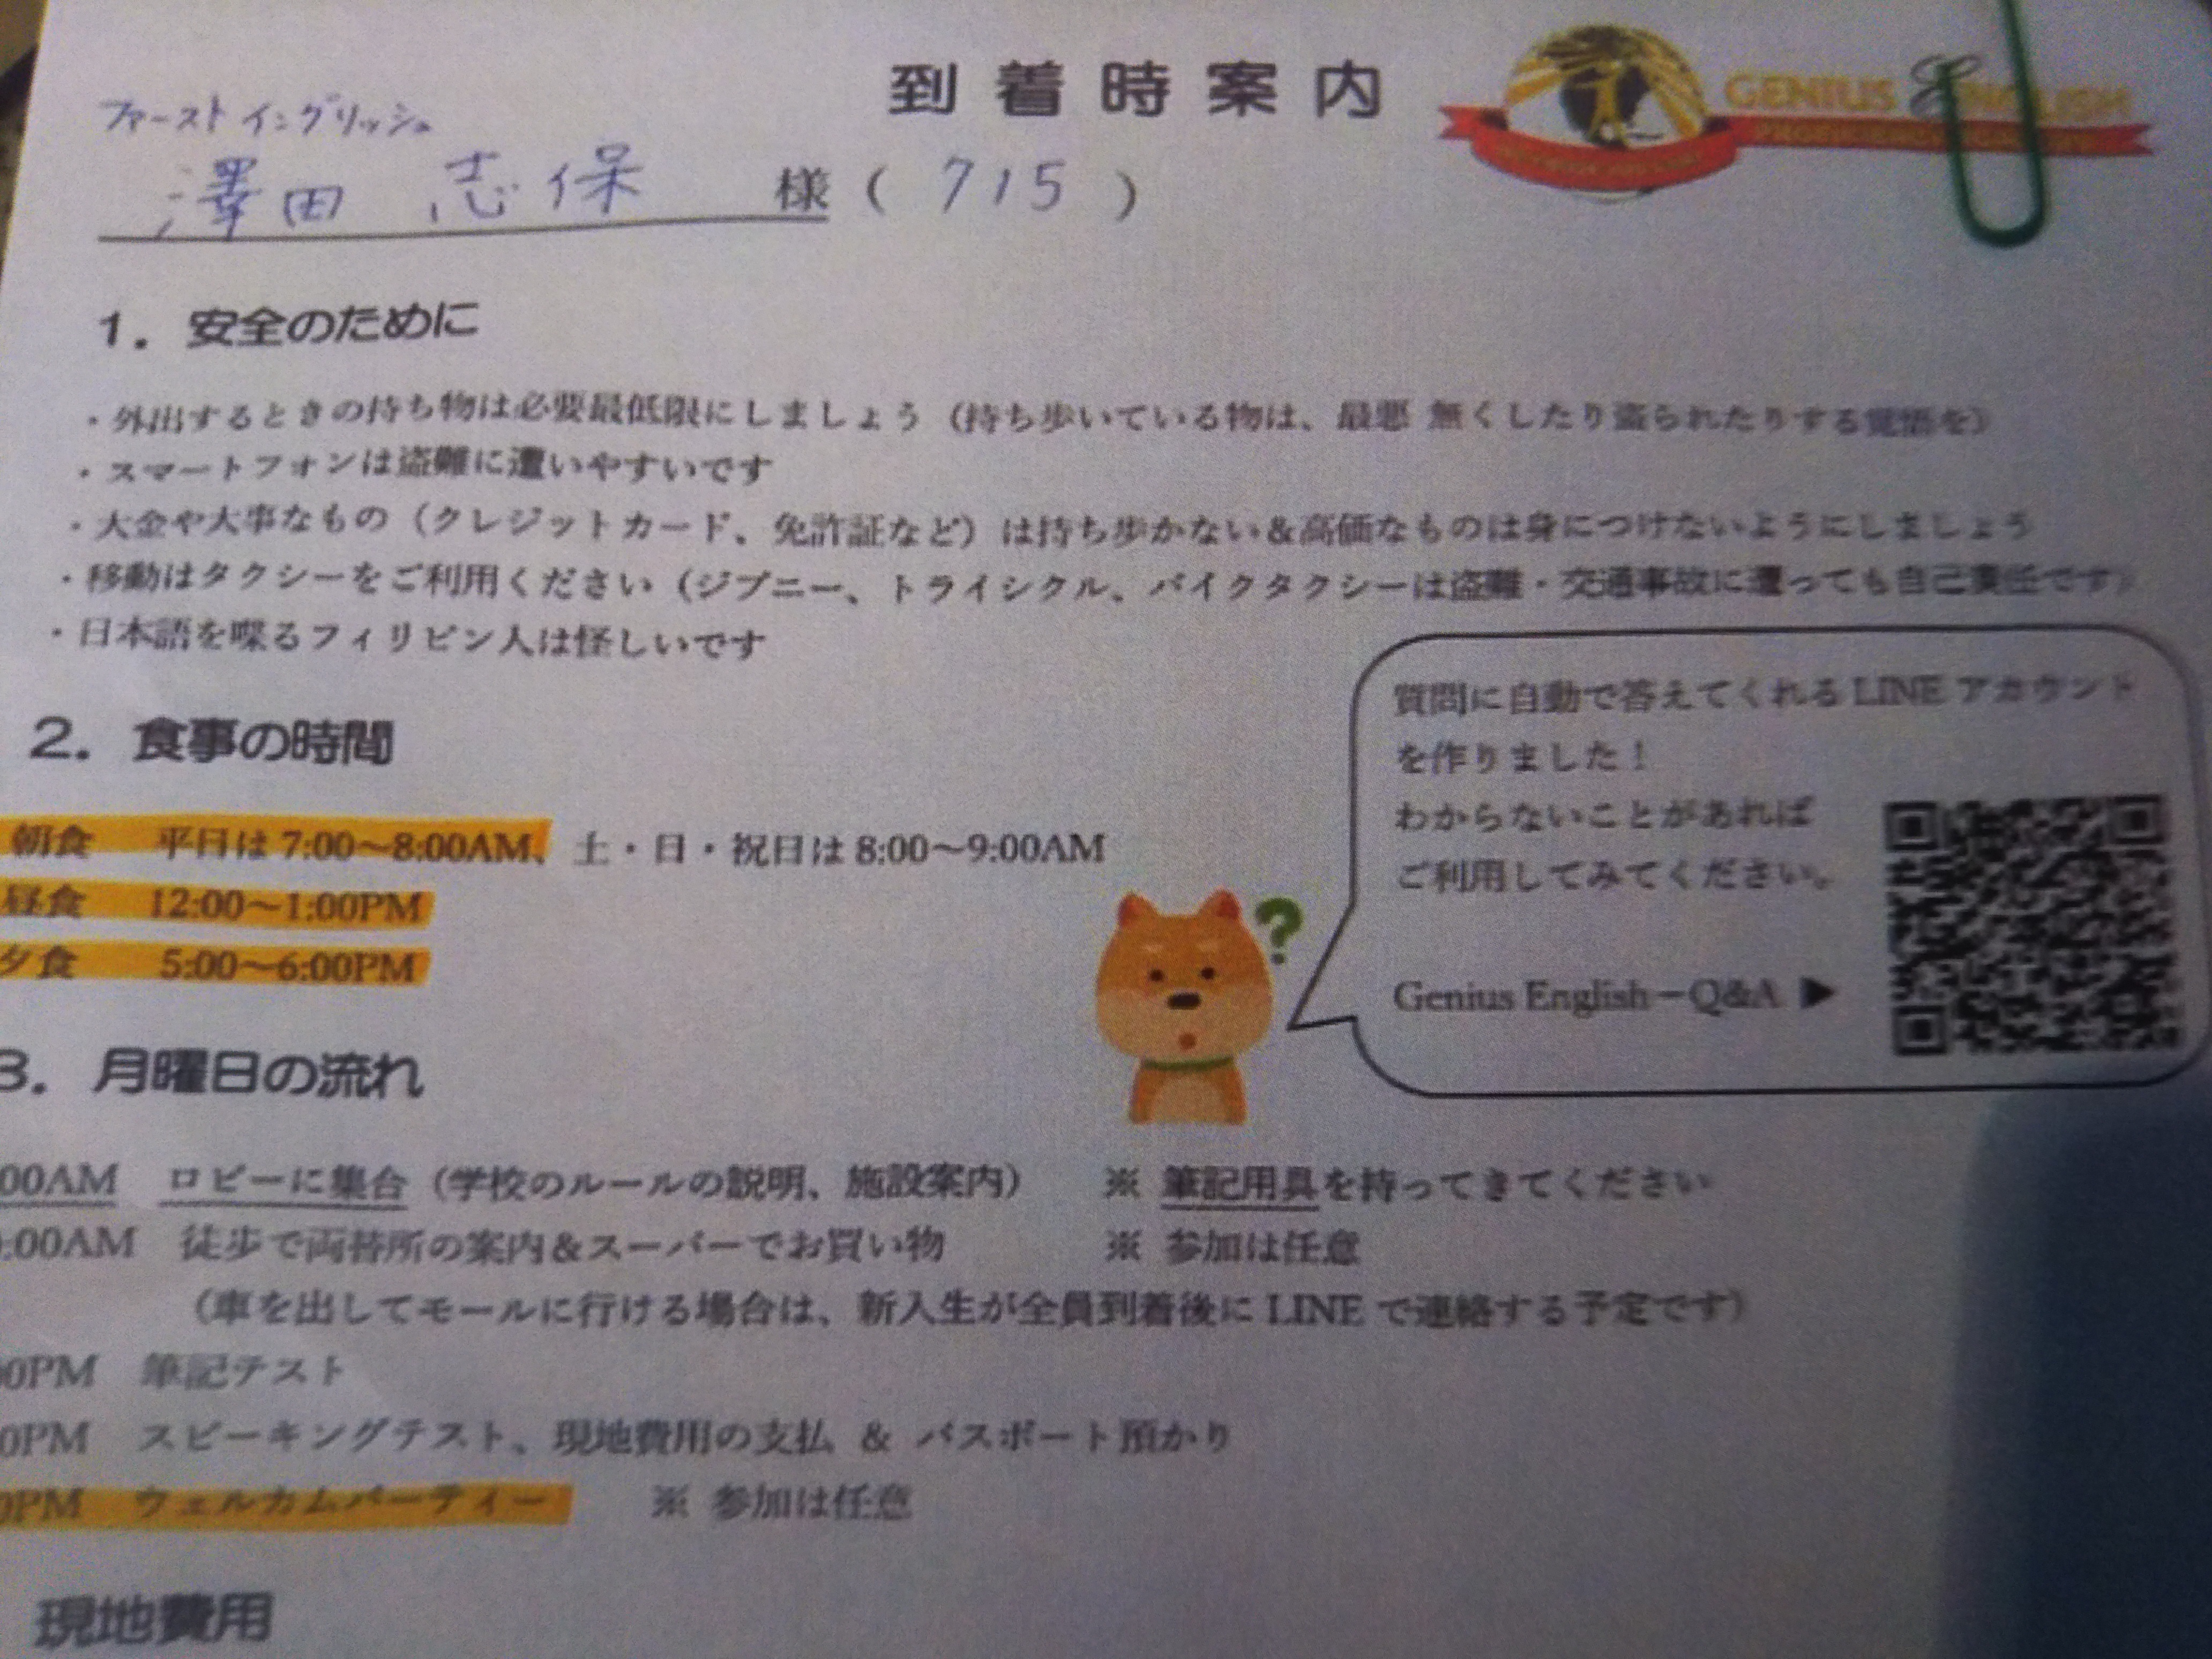 到着時案内
GENIUS ENGLISH
ファーストイングリッシュ
澤田 志保 様 ( 715 )
1. 安全のために
・外出するときの持ち物は必要最低限にしましょう（持ち歩いている物は、最悪 無くしたり盗られたりする覚悟を）
・スマートフォンは盗難に遭いやすいです
・大金や大事なもの（クレジットカード、免許証など）は持ち歩かない＆高価なものは身につけないようにしましょう
・移動はタクシーをご利用ください（ジプニー、トライシクル、バイクタクシーは盗難・交通事故に遭っても自己責任です）
・日本語を喋るフィリピン人は怪しいです
質問に自動で答えてくれる LINE アカウント
を作りました！
わからないことがあれば
ご利用してみてください。
Genius English－Q&A ▶
2. 食事の時間
朝食 平日は 7:00～8:00AM、土・日・祝日は 8:00～9:00AM
昼食 12:00～1:00PM
夕食 5:00～6:00PM
?
3. 月曜日の流れ
:00AM ロビーに集合（学校のルールの説明、施設案内） ※ 筆記用具を持ってきてください
:00AM 徒歩で両替所の案内＆スーパーでお買い物 ※ 参加は任意
（車を出してモールに行ける場合は、新入生が全員到着後に LINE で連絡する予定です）
0PM 筆記テスト
0PM スピーキングテスト、現地費用の支払 ＆ パスポート預かり
0PM ウェルカムパーティー ※ 参加は任意
現地費用